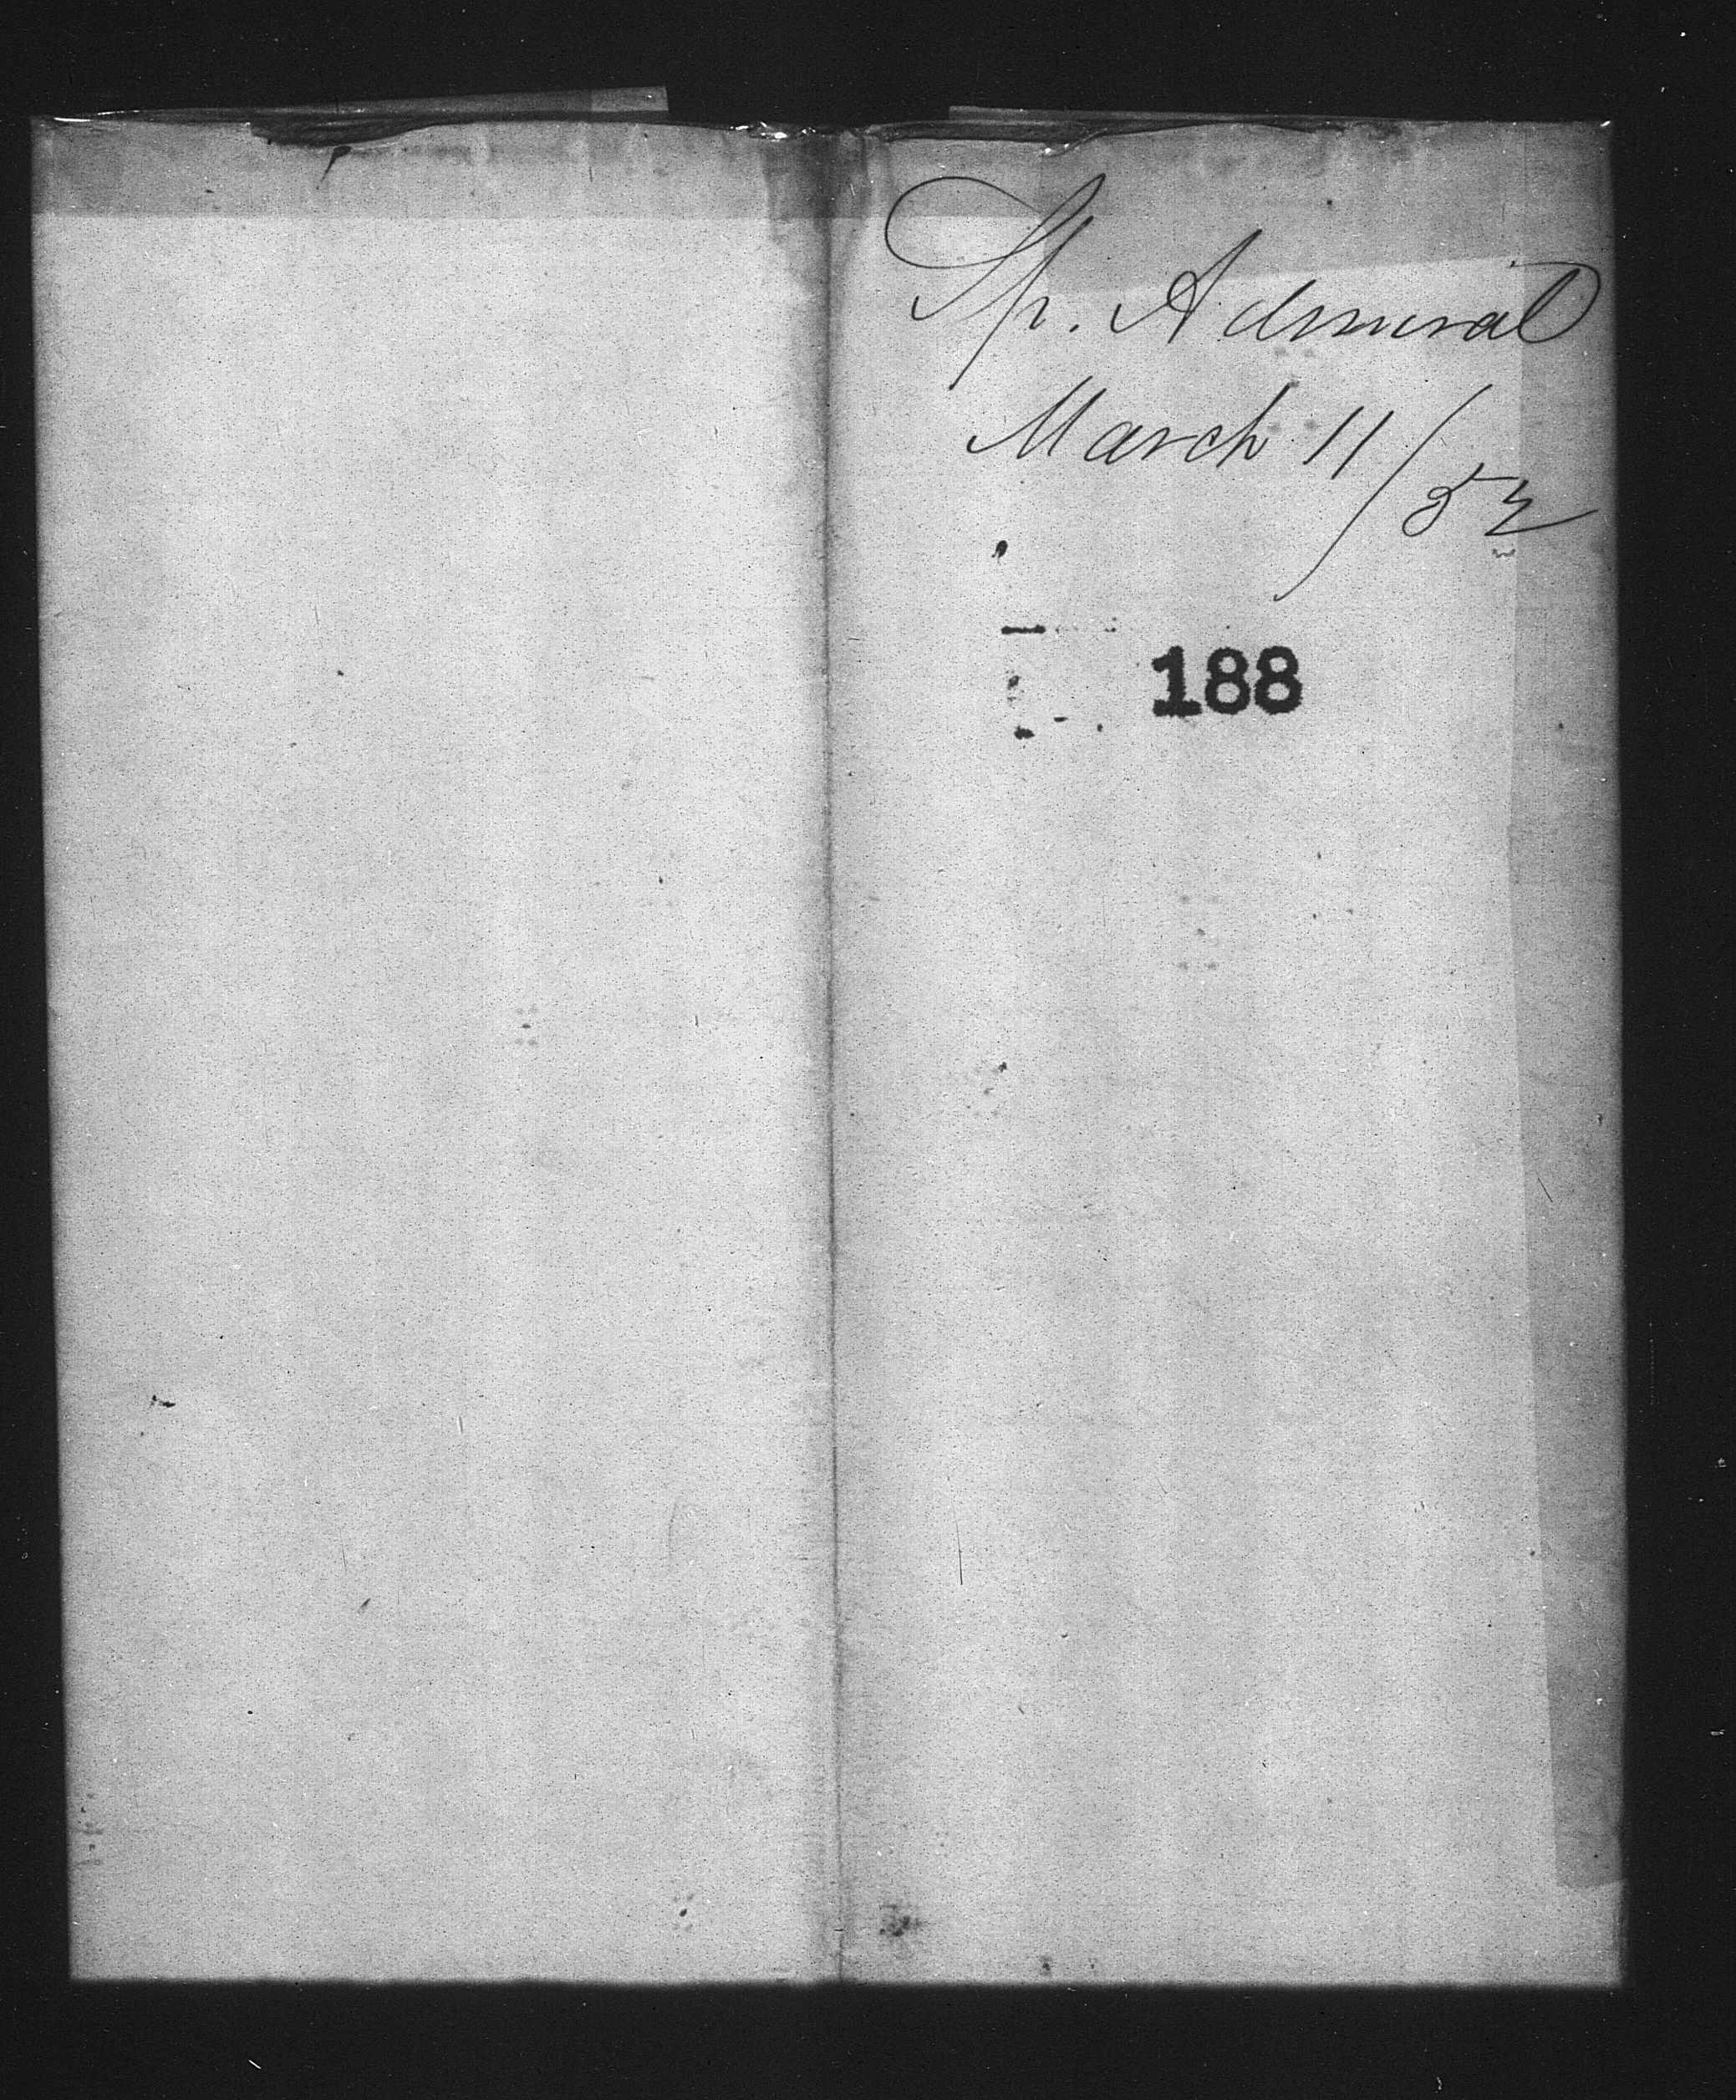 Sp. Admiral
March 11/52
188